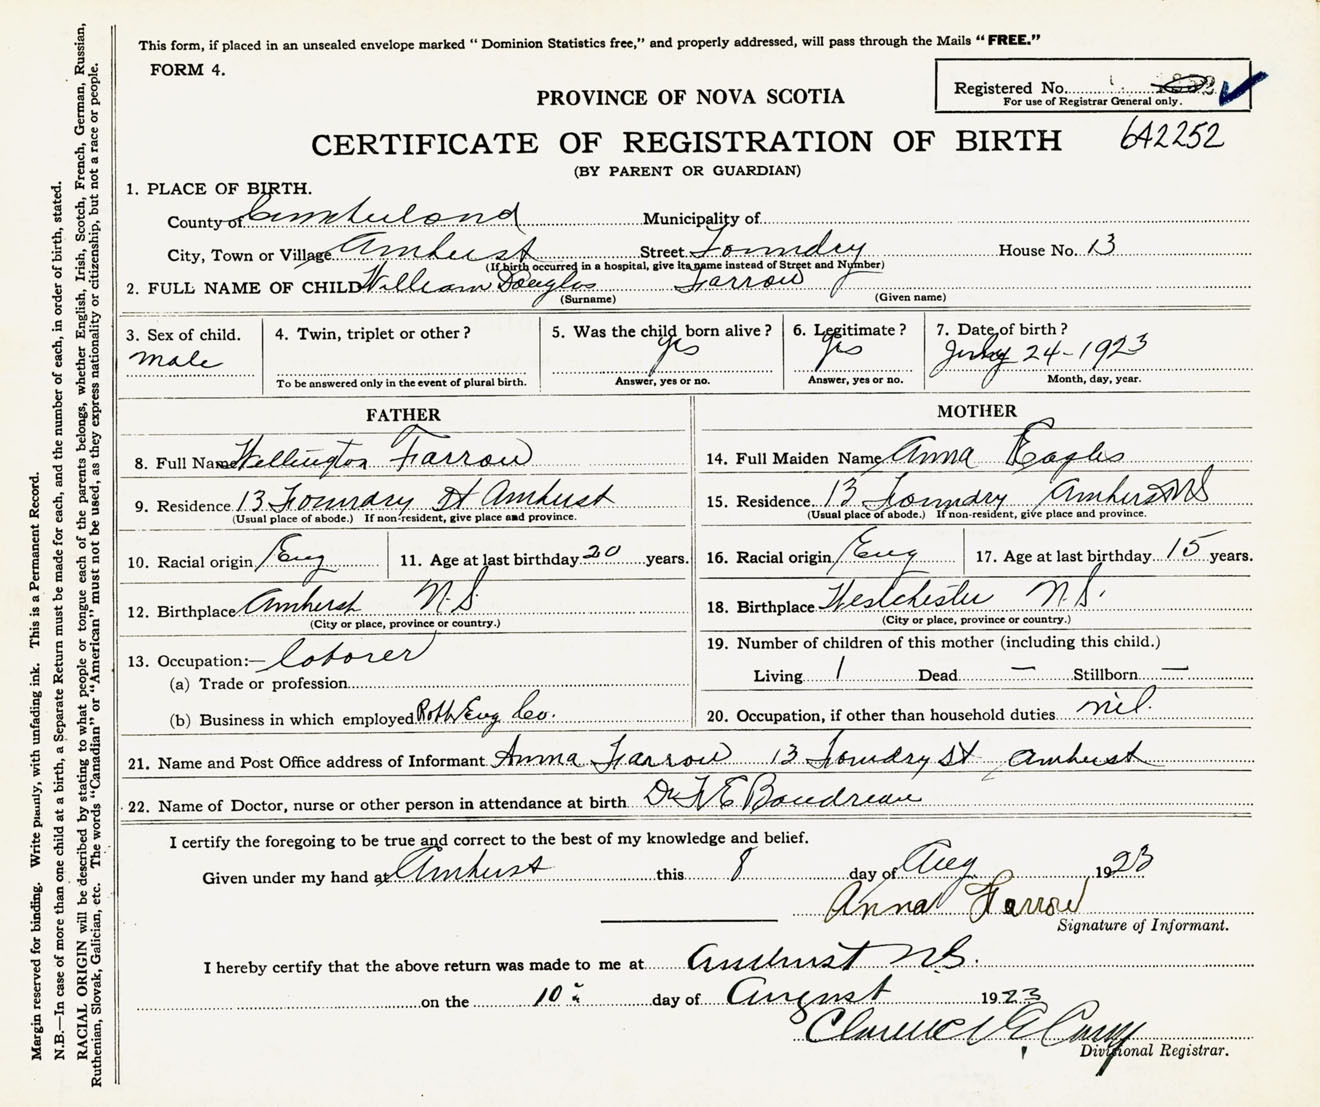 This form, if placed in an unsealed envelope marked "Dominion Statistics free," and properly addressed, will pass through the Mails "FREE."
FORM 4.
Registered No.
For use of Registrar General only.
PROVINCE OF NOVA SCOTIA
CERTIFICATE OF REGISTRATION OF BIRTH 642252
(BY PARENT OR GUARDIAN)
1. PLACE OF BIRTH.
County of Cumberland Municipality of
City, Town or Village Amherst Street Foundry House No. 13
(If birth occurred in a hospital, give its name instead of Street and Number)
2. FULL NAME OF CHILD William Douglas Farrow
(Surname) (Given name)
3. Sex of child. 4. Twin, triplet or other? 5. Was the child born alive? 6. Legitimate? 7. Date of birth?
male yes yes 24-1923
To be answered only in the event of plural birth. Answer, yes or no. Answer, yes or no. Month, day, year.
FATHER
8. Full Name Wellington Farrow
9. Residence 13 Foundry St Amherst
(Usual place of abode.) If non-resident, give place and province.
10. Racial origin Eng 11. Age at last birthday 20 years.
12. Birthplace Amherst N.S.
(City or place, province or country.)
13. Occupation:— laborer
(a) Trade or profession
(b) Business in which employed Robb Eng Co.
MOTHER
14. Full Maiden Name Anna Eagles
15. Residence 13 Foundry Amherst NS
(Usual place of abode.) If non-resident, give place and province.
16. Racial origin Eng 17. Age at last birthday 15 years.
18. Birthplace Westchester N.S.
(City or place, province or country.)
19. Number of children of this mother (including this child.)
Living 1 Dead — Stillborn —
20. Occupation, if other than household duties nil.
21. Name and Post Office address of Informant Anna Farrow 13 Foundry St Amherst
22. Name of Doctor, nurse or other person in attendance at birth Dr F E Boudreau
I certify the foregoing to be true and correct to the best of my knowledge and belief.
Given under my hand at Amherst this 8 day of Aug 1923
Anna Farrow
Signature of Informant.
I hereby certify that the above return was made to me at Amherst N.S.
on the 10 day of August 1923
Clarence
Divisional Registrar.
Margin reserved for binding. Write plainly, with unfading ink. This is a Permanent Record.
N.B.—In case of more than one child at a birth, a Separate Return must be made for each, and the number of each, in order of birth, stated.
RACIAL ORIGIN will be described by stating to what people or tongue each of the parents belongs, whether English, Irish, Scotch, French, German, Russian,
Ruthenian, Slovak, Galician, etc. The words "Canadian" or "American" must not be used, as they express nationality or citizenship, but not a race or people.